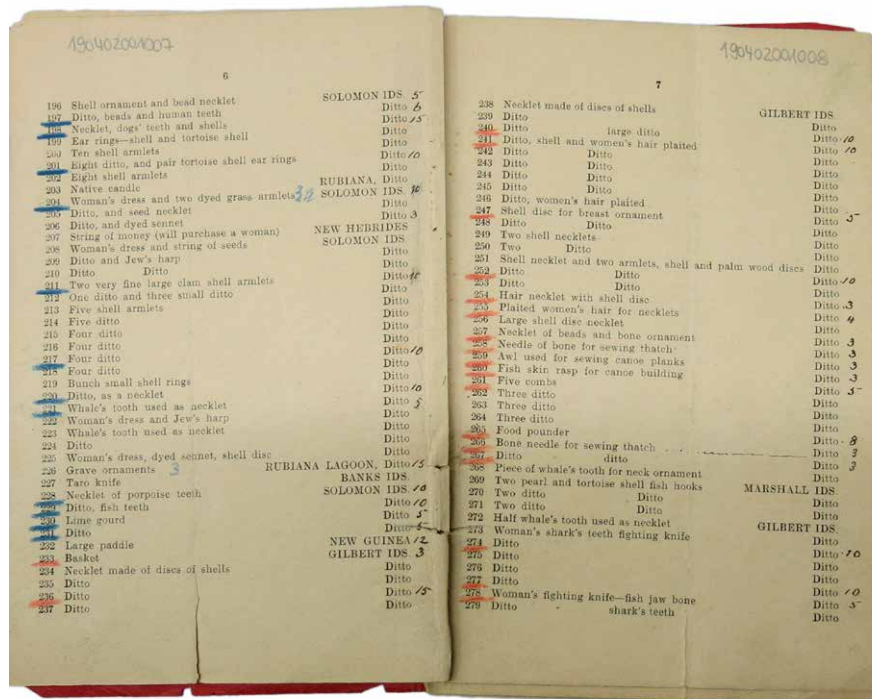 190402001007
6
196 Shell ornament and bead necklet SOLOMON IDS. 5
197 Ditto, beads and human teeth Ditto 6
198 Necklet, dogs' teeth and shells Ditto 15
199 Ear rings—shell and tortoise shell Ditto
200 Ten shell armlets Ditto
201 Eight ditto, and pair tortoise shell ear rings Ditto 10
202 Eight shell armlets Ditto
203 Native candle RUBIANA, Ditto
204 Woman's dress and two dyed grass armlets 32 SOLOMON IDS. 10
205 Ditto, and seed necklet Ditto
206 Ditto, and dyed sennet Ditto 3
207 String of money (will purchase a woman) NEW HEBRIDES
208 Woman's dress and string of seeds SOLOMON IDS.
209 Ditto and Jew's harp Ditto
210 Ditto Ditto Ditto
211 Two very fine large clam shell armlets Ditto 15
212 One ditto and three small ditto Ditto
213 Five shell armlets Ditto
214 Five ditto Ditto
215 Four ditto Ditto
216 Four ditto Ditto
217 Four ditto Ditto 10
218 Four ditto Ditto
219 Bunch small shell rings Ditto
220 Ditto, as a necklet Ditto 10
221 Whale's tooth used as necklet Ditto 5
222 Woman's dress and Jew's harp Ditto
223 Whale's tooth used as necklet Ditto
224 Ditto Ditto
225 Woman's dress, dyed sennet, shell disc Ditto
226 Grave ornaments 3 RUBIANA LAGOON, Ditto 15
227 Taro knife BANKS IDS.
228 Necklet of porpoise teeth SOLOMON IDS. 10
229 Ditto, fish teeth Ditto 10
230 Lime gourd Ditto 5
231 Ditto Ditto 5
232 Large paddle NEW GUINEA 12
233 Basket GILBERT IDS. 3
234 Necklet made of discs of shells Ditto
235 Ditto Ditto
236 Ditto Ditto 15
237 Ditto Ditto
190402001008
7
238 Necklet made of discs of shells GILBERT IDS.
239 Ditto Ditto
240 Ditto large ditto Ditto 10
241 Ditto, shell and women's hair plaited Ditto 10
242 Ditto Ditto Ditto
243 Ditto Ditto Ditto
244 Ditto Ditto Ditto
245 Ditto Ditto Ditto
246 Ditto, women's hair plaited Ditto
247 Shell disc for breast ornament Ditto 5
248 Ditto Ditto Ditto
249 Two shell necklets Ditto
250 Two Ditto Ditto
251 Shell necklet and two armlets, shell and palm wood discs Ditto
252 Ditto Ditto Ditto 10
253 Ditto Ditto Ditto
254 Hair necklet with shell disc Ditto 3
255 Plaited women's hair for necklets Ditto 4
256 Large shell disc necklet Ditto
257 Necklet of beads and bone ornament Ditto 3
258 Needle of bone for sewing thatch Ditto 3
259 Awl used for sewing canoe planks Ditto 3
260 Fish skin rasp for canoe building Ditto 3
261 Five combs Ditto 5
262 Three ditto Ditto
263 Three ditto Ditto
264 Three ditto Ditto
265 Food pounder Ditto 8
266 Bone needle for sewing thatch Ditto 3
267 Ditto ditto Ditto 3
268 Piece of whale's tooth for neck ornament Ditto
269 Two pearl and tortoise shell fish hooks MARSHALL IDS.
270 Two ditto Ditto Ditto
271 Two ditto Ditto Ditto
272 Half whale's tooth used as necklet GILBERT IDS.
273 Woman's shark's teeth fighting knife Ditto
274 Ditto Ditto 10
275 Ditto Ditto
276 Ditto Ditto
277 Ditto Ditto 10
278 Woman's fighting knife—fish jaw bone Ditto 5
279 Ditto shark's teeth Ditto